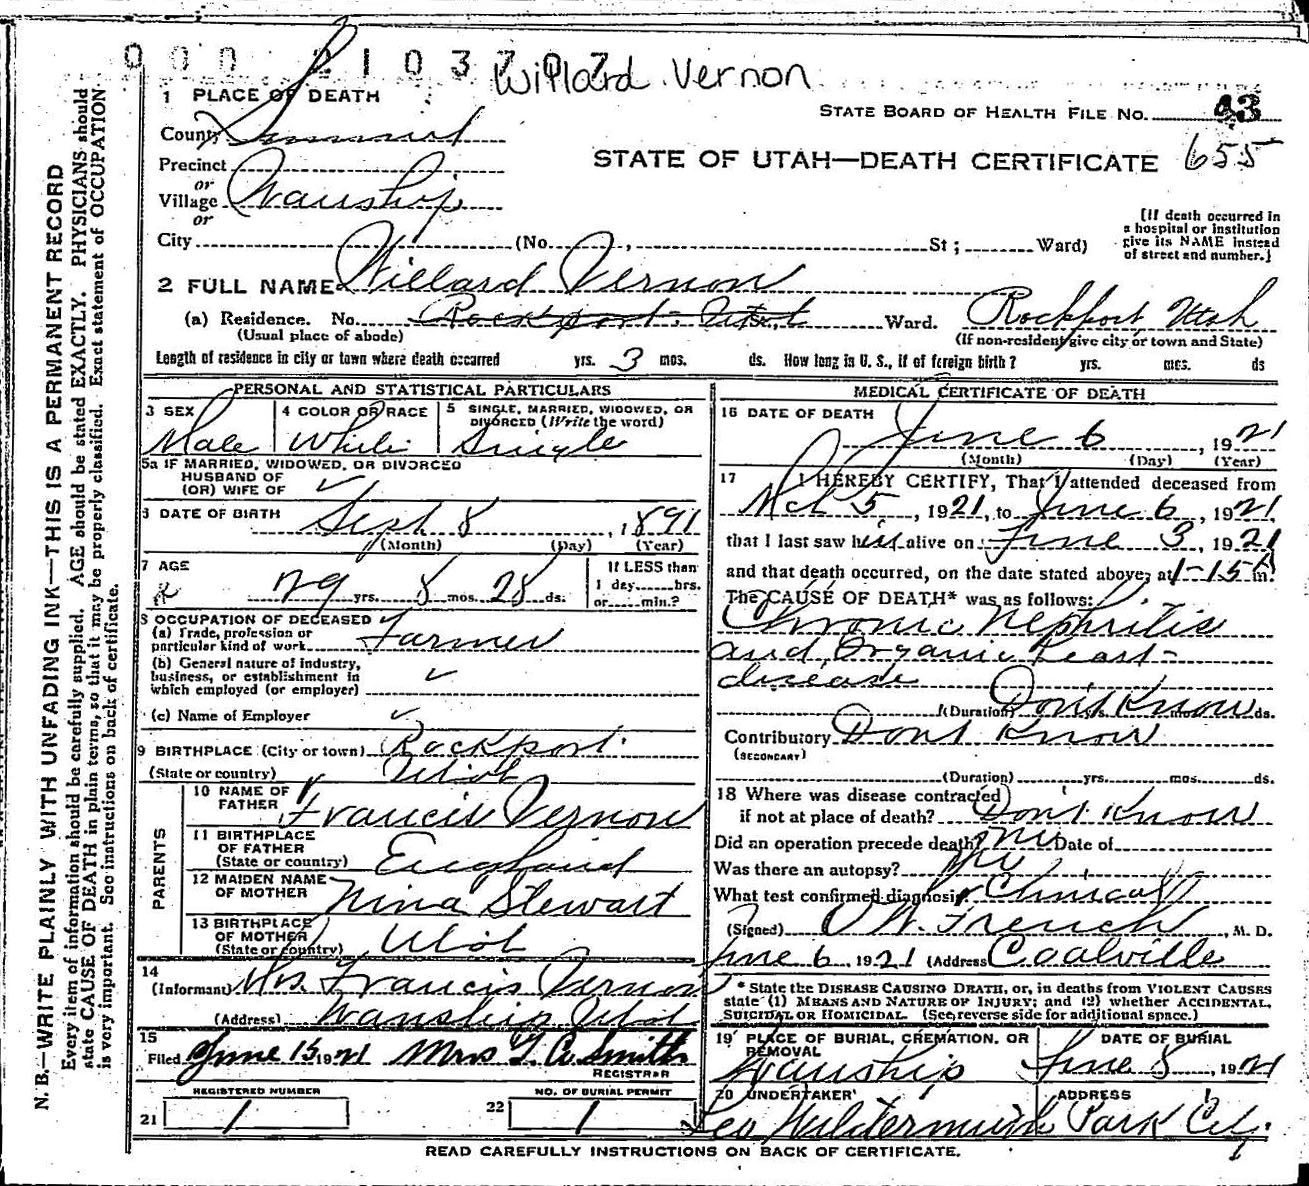 000 2103707
Willard Vernon
1 PLACE OF DEATH
STATE BOARD OF HEALTH FILE NO. 93
County Summit
STATE OF UTAH—DEATH CERTIFICATE 655
Precinct
or
Village Wanship
or
[If death occurred in a hospital or institution give its NAME instead of street and number.]
City (No. , St; Ward)
2 FULL NAME Willard Vernon
(a) Residence. No. Rockport, Utah St., Ward. Rockport Utah
(Usual place of abode) (If non-resident give city or town and State)
Length of residence in city or town where death occurred yrs. 3 mos. ds. How long in U. S., if of foreign birth? yrs. mos. ds
PERSONAL AND STATISTICAL PARTICULARS
3 SEX Male
4 COLOR OR RACE White
5 SINGLE, MARRIED, WIDOWED, OR DIVORCED (Write the word) Single
5a IF MARRIED, WIDOWED, OR DIVORCED
HUSBAND OF
(OR) WIFE OF ✓
6 DATE OF BIRTH Sept 8, 1891
(Month) (Day) (Year)
7 AGE 29 yrs. 8 mos. 28 ds.
If LESS than
1 day hrs.
or min.?
8 OCCUPATION OF DECEASED
(a) Trade, profession or
particular kind of work Farmer
(b) General nature of industry,
business, or establishment in
which employed (or employer) ✓
(c) Name of Employer ✓
9 BIRTHPLACE (City or town) Rockport
(State or country) Utah
PARENTS
10 NAME OF
FATHER Francis Vernon
11 BIRTHPLACE
OF FATHER
(State or country) England
12 MAIDEN NAME
OF MOTHER Nina Stewart
13 BIRTHPLACE
OF MOTHER
(State or country) Utah
14
(Informant) Mrs. Francis Vernon
(Address) Wanship Utah
15
Filed June 15 1921 Mrs T. C. Smith
REGISTRAR
REGISTERED NUMBER
21 1
NO. OF BURIAL PERMIT
22 1
MEDICAL CERTIFICATE OF DEATH
16 DATE OF DEATH
June 6, 1921
(Month) (Day) (Year)
17 I HEREBY CERTIFY, That I attended deceased from
Mch 5, 1921, to June 6, 1921,
that I last saw him alive on June 3, 1921
and that death occurred, on the date stated above, at 1-15 A m.
The CAUSE OF DEATH* was as follows:
Chronic Nephritis
and Organic Heart
disease
(Duration) Don't Know yrs. mos. ds.
Contributory Dont Know
(SECONDARY)
(Duration) yrs. mos. ds.
18 Where was disease contracted
if not at place of death? Don't Know
Did an operation precede death? no Date of
Was there an autopsy? no
What test confirmed diagnosis? Clinical
(Signed) O W. French, M. D.
June 6 1921 (Address Coalville
* State the DISEASE CAUSING DEATH, or, in deaths from VIOLENT CAUSES
state (1) MEANS AND NATURE OF INJURY; and (2) whether ACCIDENTAL,
SUICIDAL OR HOMICIDAL. (See reverse side for additional space.)
19 PLACE OF BURIAL, CREMATION, OR REMOVAL Wanship
DATE OF BURIAL June 8, 1921
20 UNDERTAKER Leo Wildermuth
ADDRESS Park City.
READ CAREFULLY INSTRUCTIONS ON BACK OF CERTIFICATE.
N. B.—WRITE PLAINLY WITH UNFADING INK—THIS IS A PERMANENT RECORD
Every item of information should be carefully supplied. AGE should be stated EXACTLY. PHYSICIANS should
state CAUSE OF DEATH in plain terms, so that it may be properly classified. Exact statement of OCCUPATION
is very important. See instructions on back of certificate.